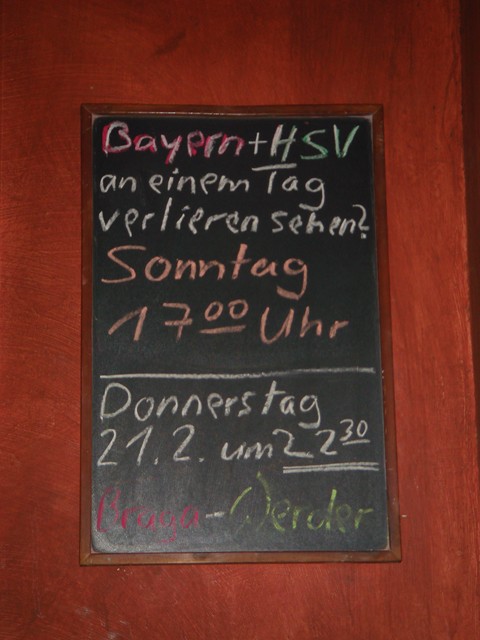 Bayern+HSV
an einem Tag
verlieren sehen?
Sonntag
17 00 Uhr
Donnerstag
21.2. um 22 30
Braga-Werder